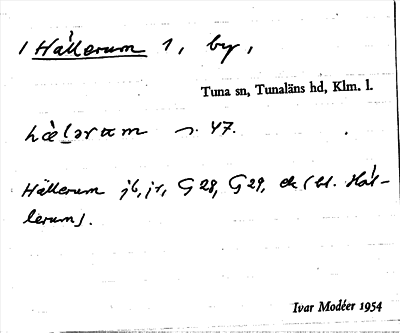 / Hällerum 1, by,
Tuna sn, Tunaläns hd, Klm. l.
Hällerum j6, j1, G 28, G 29, ek (bl. Häl-
lerum).
Ivar Modéer 1954